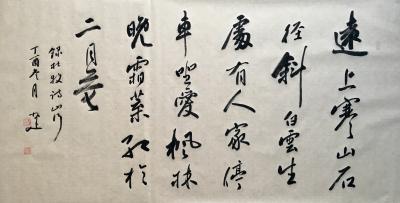 遠上寒山石
徑斜白雲生
處有人家停
車坐愛楓林
晚霜葉紅於
二月花
錄杜牧詩山行
丁酉冬月